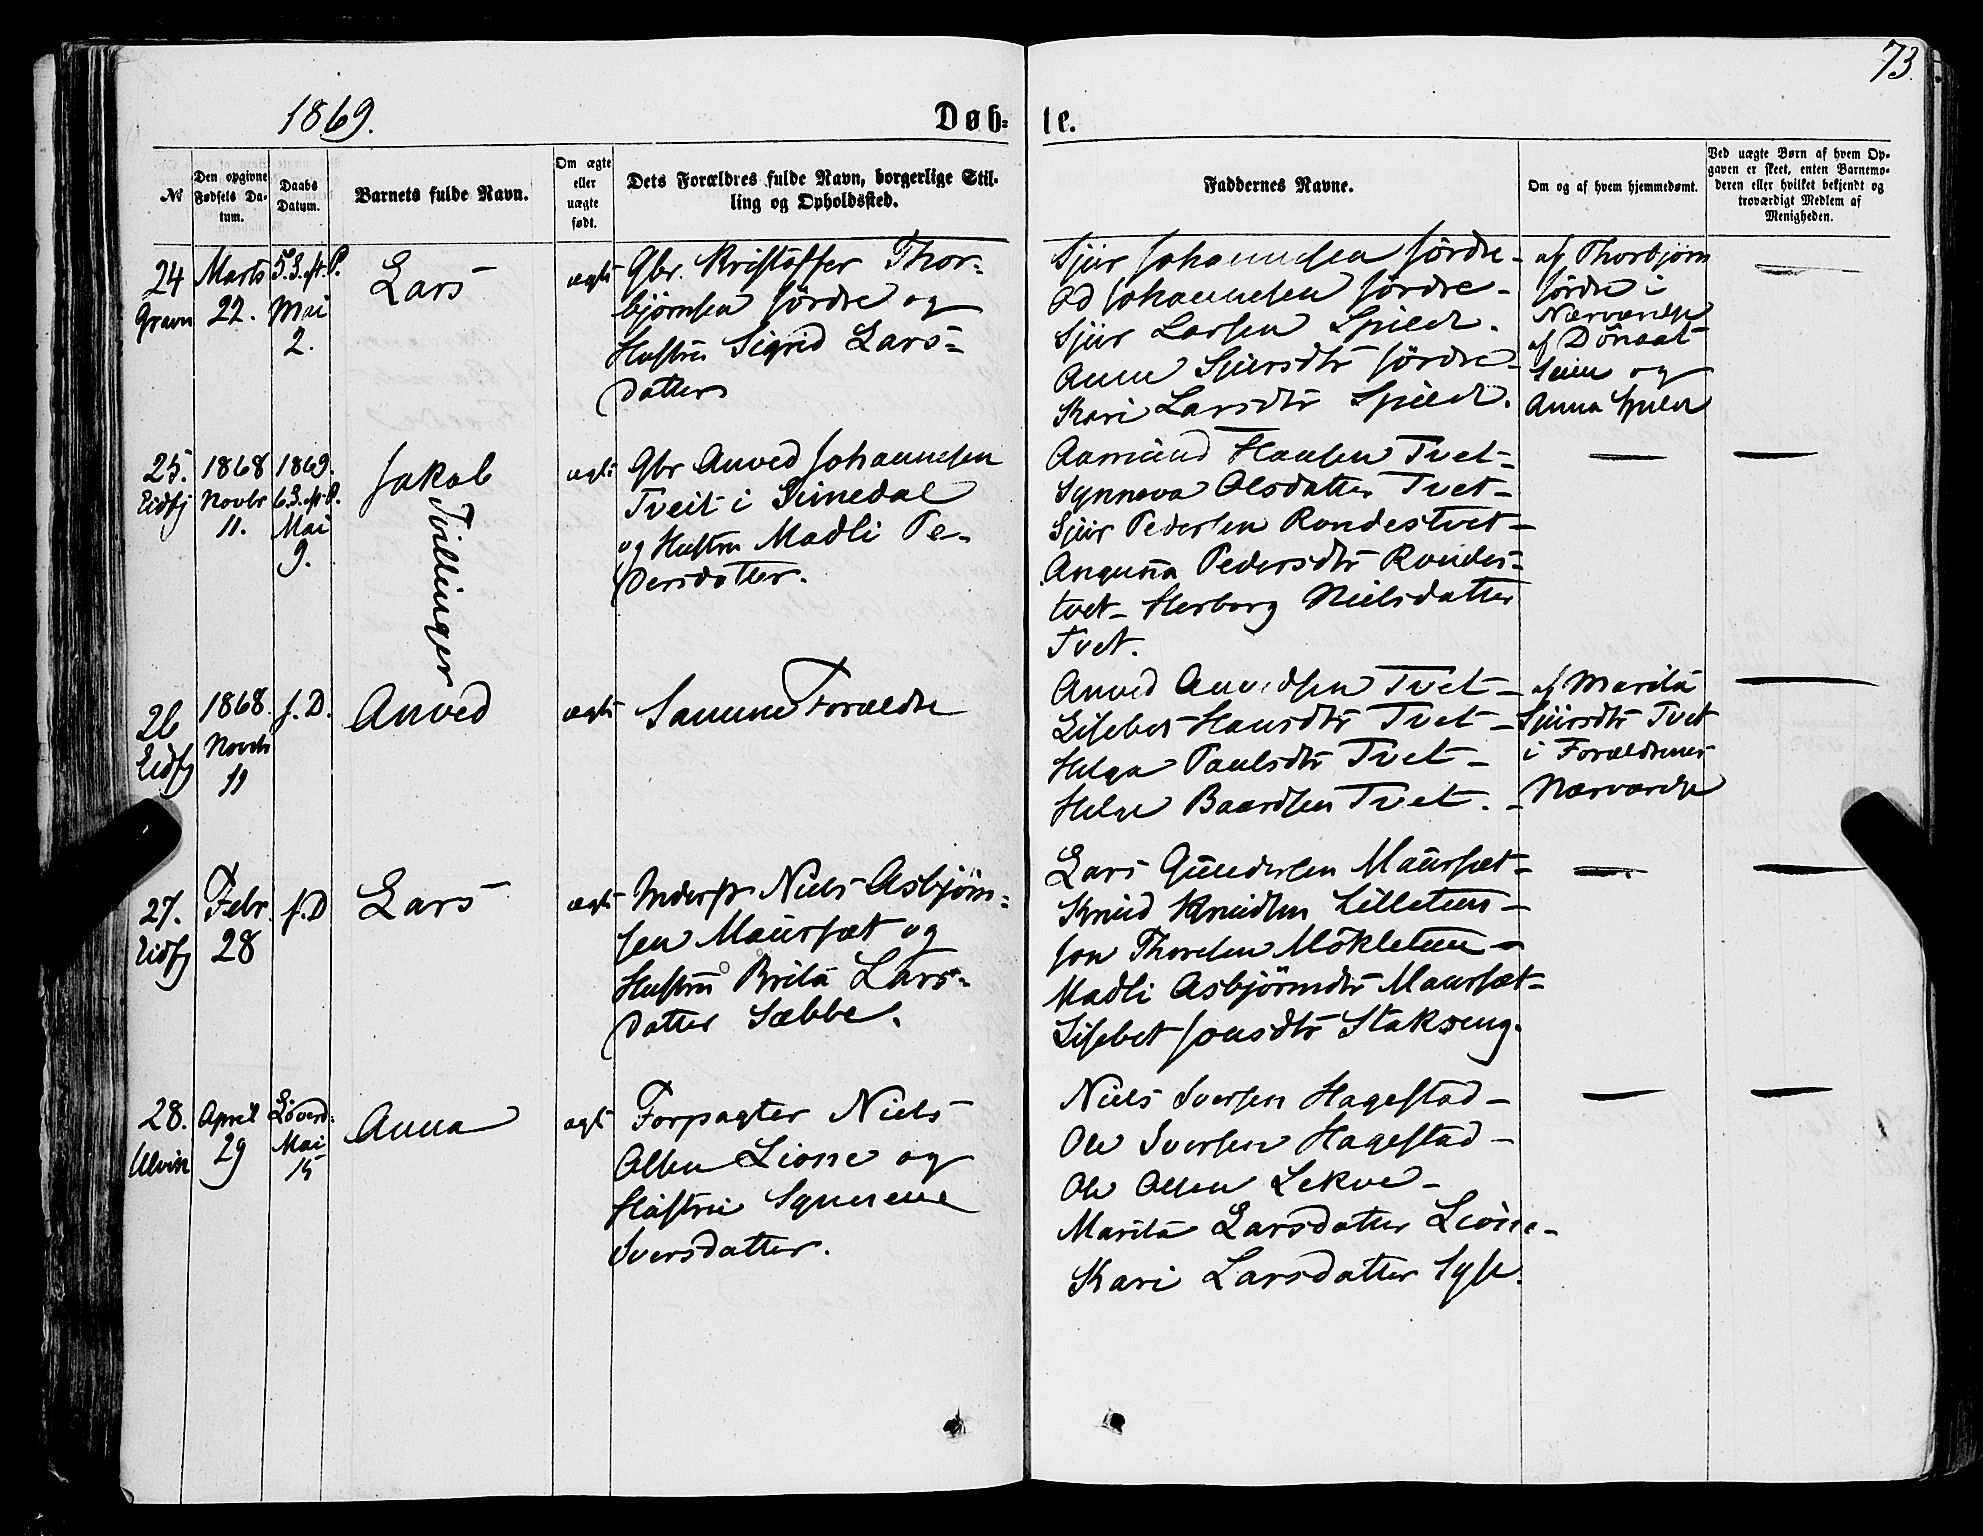 73.
1869.
Døb-
te.
№
Den opgivne Fødsels Datum.
Daabs Datum.
Barnets fulde Navn.
Om ægte eller uægte født.
Dets Forældres fulde Navn, borgerlige Stilling og Opholdssted.
Faddernes Navne.
Om og af hvem hjemmedøbt.
Ved uægte Børn af hvem Opgaven er skeet, enten Barnemoderen eller hvilket bekjendt og troværdigt Medlem af Menigheden.
24
Gravn
Marts
22.
5.S. eft. P.
Mai
2.
Lars
ægte
Gbr. Kristoffer Thor-
bjørnsen Jördre og
Hustru Sigrid Lars-
datter
Sjur Johannesen Jördre-
Od Johannesen Jördre-
Sjur Larsen Spilde.
Anna Sjursdtr Jördre-
Kari Larsdtr Spilde.
af Thorbjørn
Jördre i
Nærværelse
af
Seim og
Anna Spilde
25.
Eidfj
1868
Novbr
11.
1869.
6.S. eft. P.
Mai
9.
Jakob
Tvillinger
ægte
Gbr Anved Johannesen
Tveit i Simedal
og Hustru Madli Pe-
dersdatter.
Aamund Hansen Tvet-
Synneva Olsdatter Tvet-
Sjur Pedersen Rondestvet-
Angunna Pedersdtr Rondes-
tvet- Herborg Nielsdatter
Tvet.
26
Eidfj
1868.
Novbr
11
s. D.
Anved
ægte
Samme Forældre
Anved Anvedsen Tvet-
Lisebet Hansdtr Tvet-
Helga Paulsdtr Tvet-
Helge Baardsen Tvet.-
af Marita
Sjursdtr Tvet
i Forældrenes
Nærværelse
27.
Eidfj
Febr.
28
s. D
Lars
ægte
Inderst Niels Asbjørn-
sen Maursæt og
Hustru Brita Lars-
datter Sæbbe.
Lars Gundersen Maursæt-
Knud Knudsen Lilletun-
Jon Thorsen Mökletun-
Madli Asbjörnsdtr Maursæt-
Lisebet Jonsdtr Stakseng.
28.
Ulvik
April
29
Löverd.
Mai
15
Anna
ægte
Forpagter Niels
Olsen Lione og
Hustru Synneve
Iversdatter.
Niels Iversen Hagestad-
Ole Iversen Hagestad-
Ole Olsen Lekve-
Marita Larsdatter Lione-
Kari Larsdatter Syse.